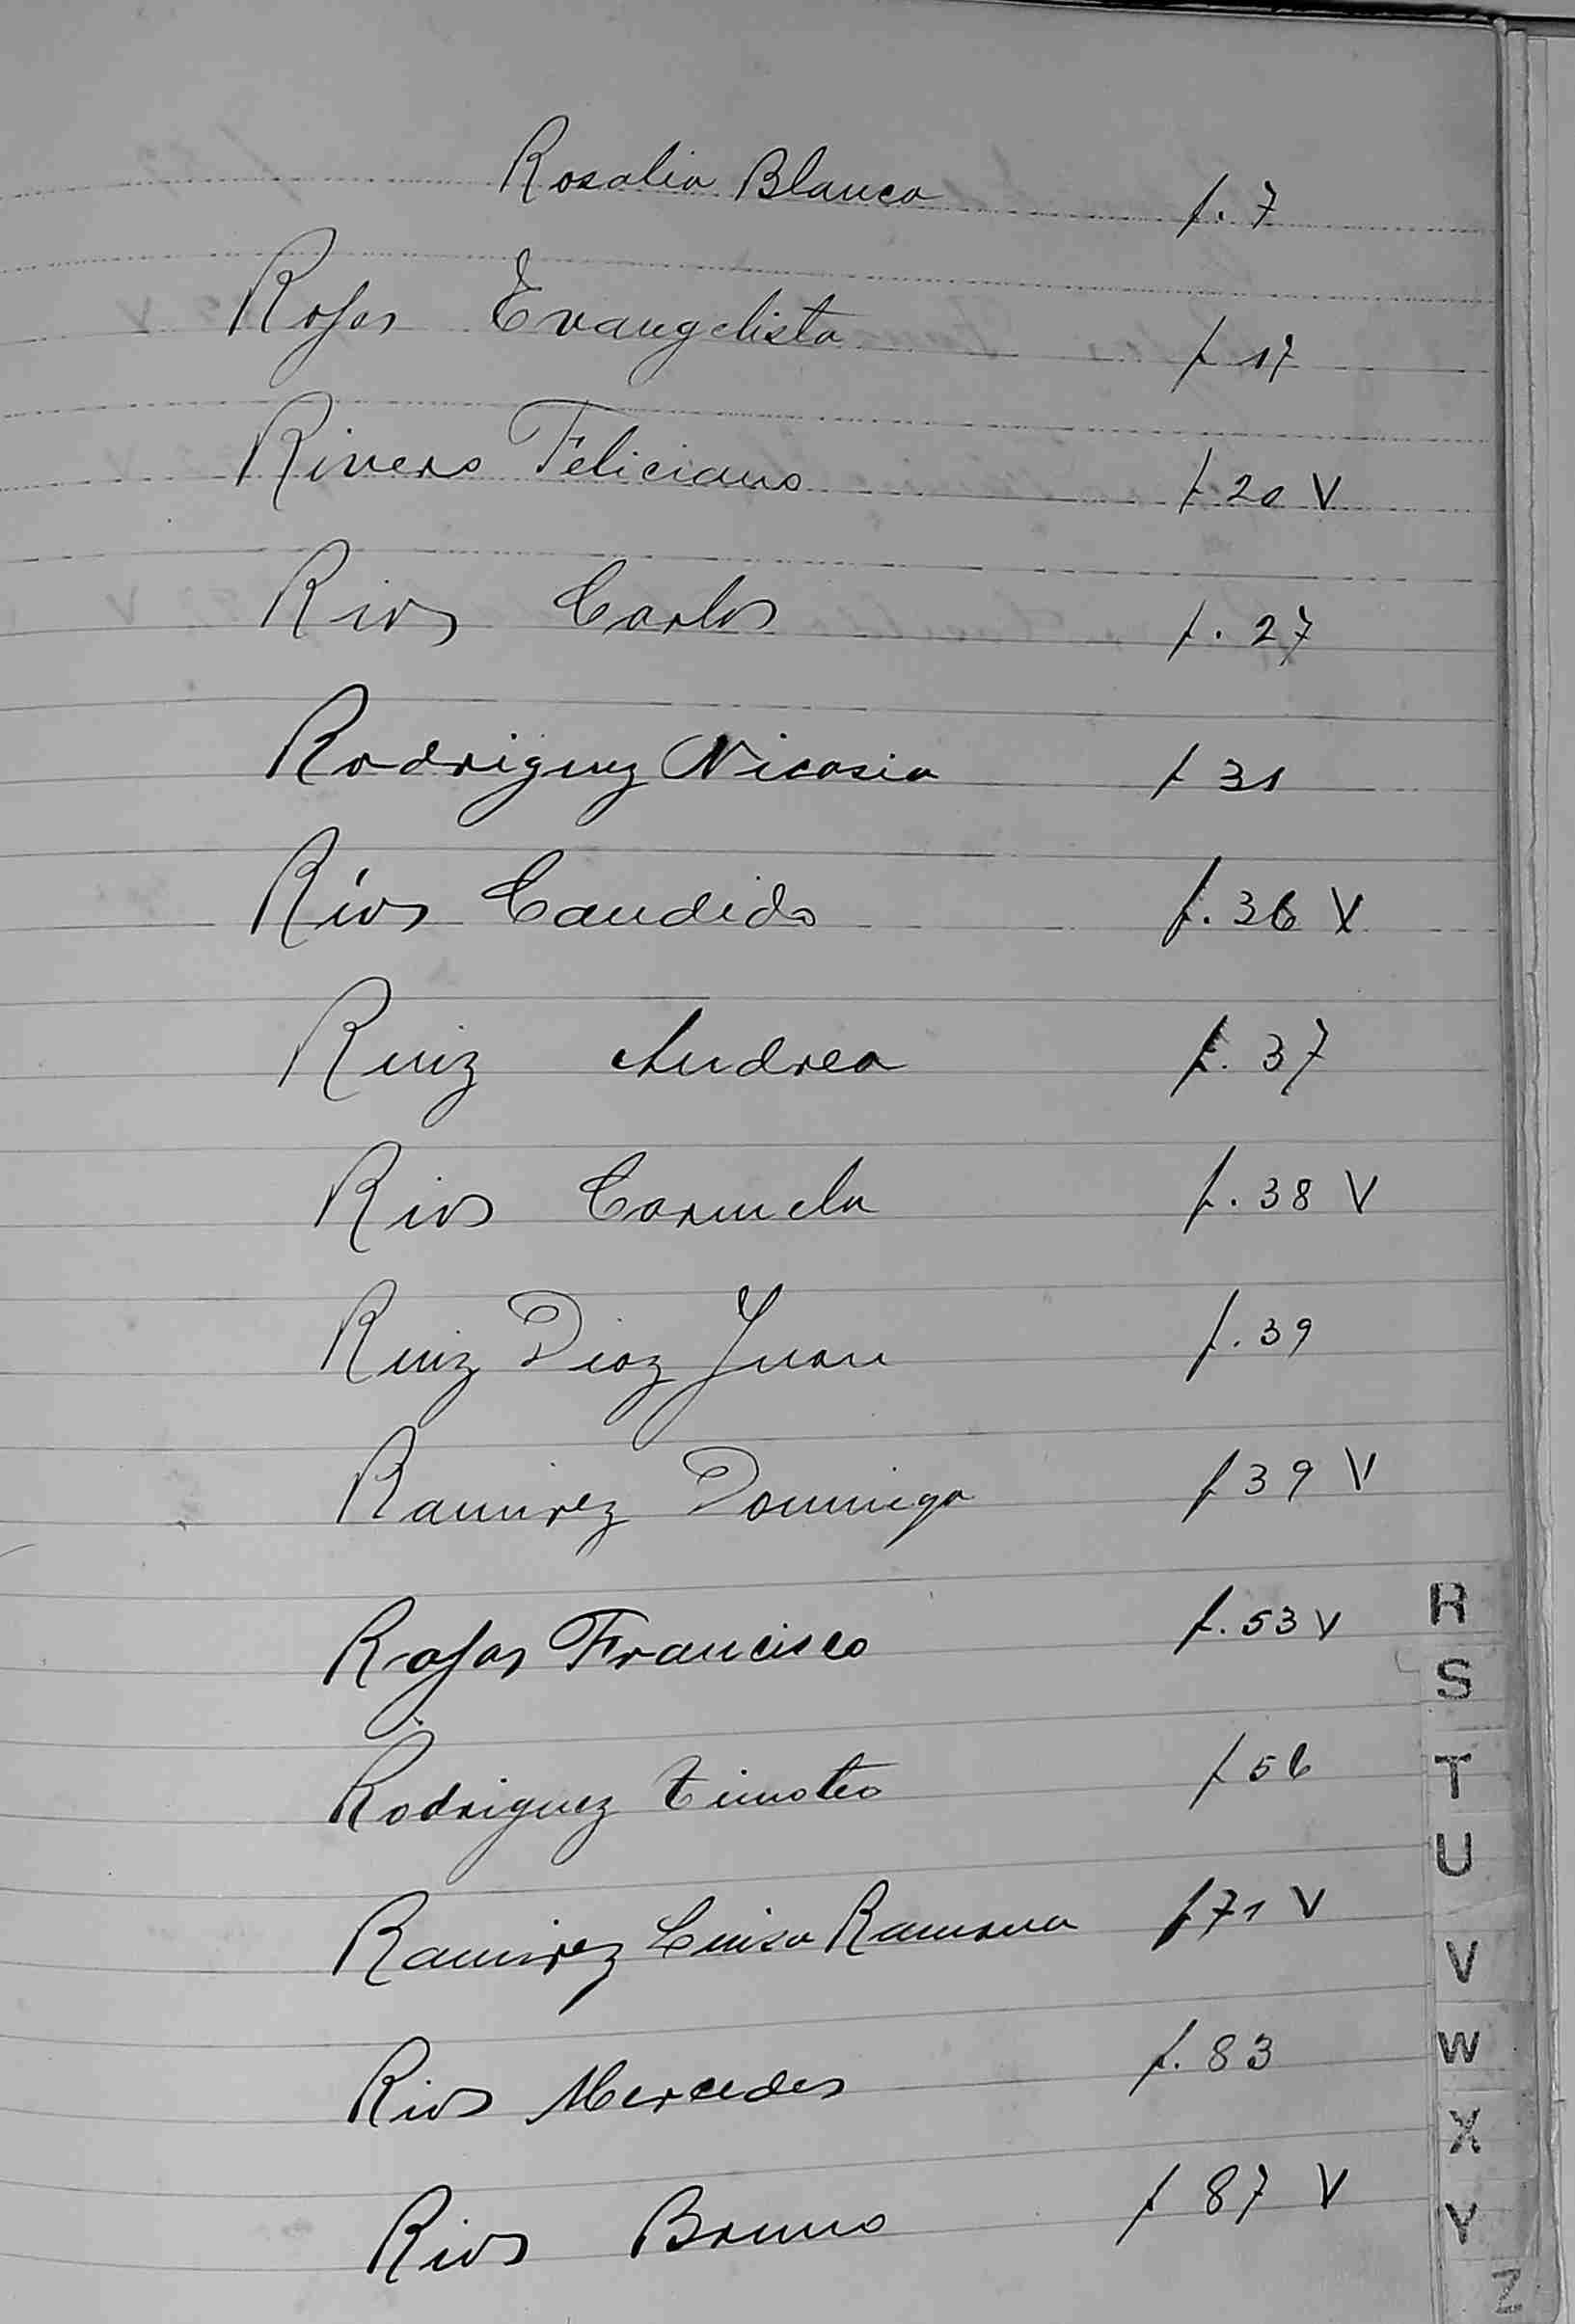 Rosalia Blanca f. 7
Rojas Evangelista f 17
Rivero Feliciano f 20 V
Rios Carlos f. 27
Rodriguez Nicasia f 31
Ríos Candido f. 36 V
Ruiz Andrea f. 37
Rios Carmela f. 38 V
Ruiz Diaz Juan f. 39
Ramirez Dominga f 39 V
Rojas Francisco f. 53 V
Rodriguez Timoteo f 56
Ramirez Luisa Ramona f 71 V
Rios Mercedes f. 83
Rios Bruno f 87 V
R
S
T
U
V
W
X
Y
Z